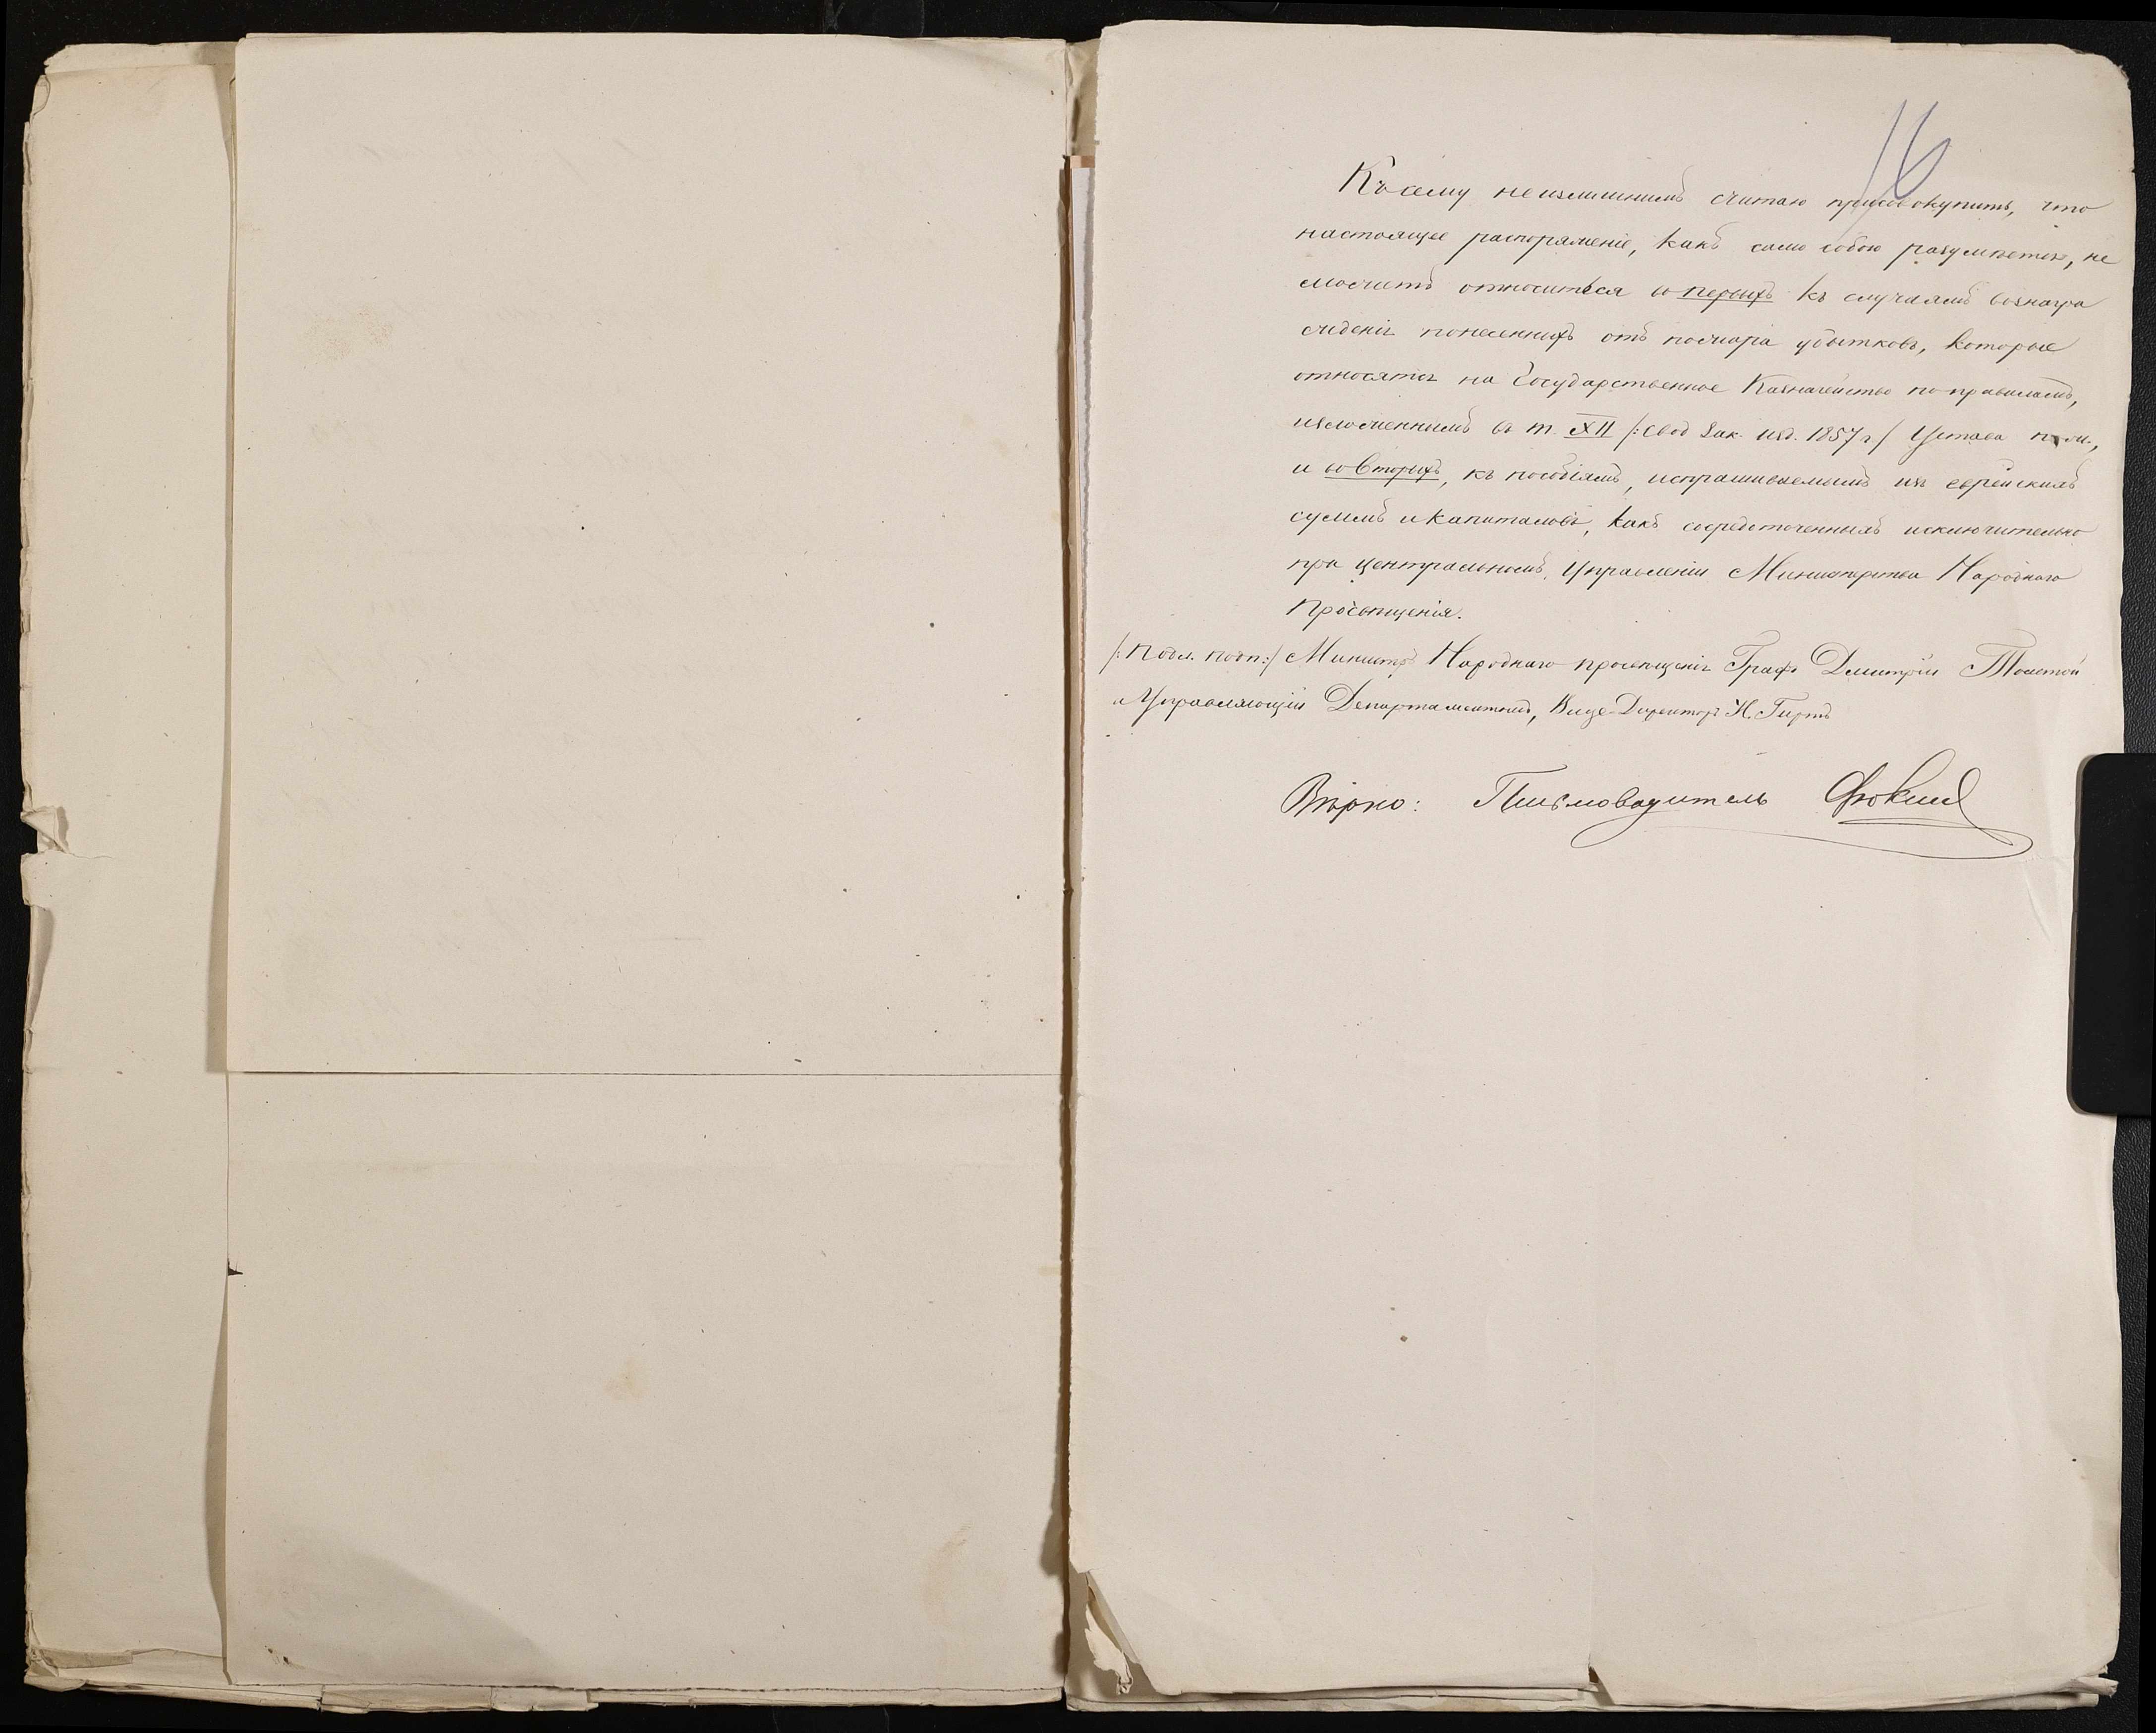 16
Къ сему неизлишнимъ считаю присовокупить, что
настоящее распоряженіе, какъ само собою разумѣется, не
можетъ относиться во первыхъ къ случаямъ вознагра
жденія понесенныхъ отъ пожара убытковъ, которые
относятся на Государственное Казначейство по правиламъ,
изложеннымъ въ т. XII /: Свод Зак. изд. 1857 г./ Устава
и во вторыхъ, къ пособіямъ, испрашиваемымъ изъ еврейскихъ
суммъ и капиталовъ, какъ сосредоточенныхъ исключительно
при Центральномъ Управленіи Министерства Народнаго
Просвѣщенія.
/: Подл. подп:/ Министръ Народнаго просвѣщенія Графъ Дмитрій Толстой
и Управляющій Департаментомъ, Вице-Директоръ Н. Гиртъ
Вѣрно: Письмоводитель Фокинъ